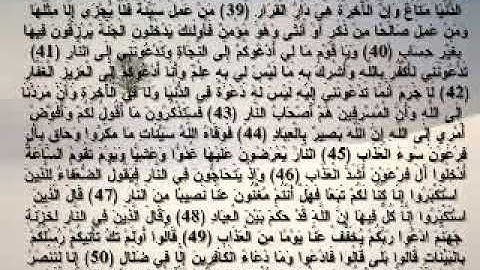 الدُّنْيَا مَتَاعٌ وَإِنَّ الْآخِرَةَ هِيَ دَارُ الْقَرَارِ (39) مَنْ عَمِلَ سَيِّئَةً فَلَا يُجْزَى إِلَّا مِثْلَهَا
وَمَنْ عَمِلَ صَالِحًا مِنْ ذَكَرٍ أَوْ أُنْثَى وَهُوَ مُؤْمِنٌ فَأُولَئِكَ يَدْخُلُونَ الْجَنَّةَ يُرْزَقُونَ فِيهَا
بِغَيْرِ حِسَابٍ (40) وَيَا قَوْمِ مَا لِي أَدْعُوكُمْ إِلَى النَّجَاةِ وَتَدْعُونَنِي إِلَى النَّارِ (41)
تَدْعُونَنِي لِأَكْفُرَ بِاللَّهِ وَأُشْرِكَ بِهِ مَا لَيْسَ لِي بِهِ عِلْمٌ وَأَنَا أَدْعُوكُمْ إِلَى الْعَزِيزِ الْغَفَّارِ
(42) لَا جَرَمَ أَنَّمَا تَدْعُونَنِي إِلَيْهِ لَيْسَ لَهُ دَعْوَةٌ فِي الدُّنْيَا وَلَا فِي الْآخِرَةِ وَأَنَّ مَرَدَّنَا
إِلَى اللَّهِ وَأَنَّ الْمُسْرِفِينَ هُمْ أَصْحَابُ النَّارِ (43) فَسَتَذْكُرُونَ مَا أَقُولُ لَكُمْ وَأُفَوِّضُ
أَمْرِي إِلَى اللَّهِ إِنَّ اللَّهَ بَصِيرٌ بِالْعِبَادِ (44) فَوَقَاهُ اللَّهُ سَيِّئَاتِ مَا مَكَرُوا وَحَاقَ بِآلِ
فِرْعَوْنَ سُوءُ الْعَذَابِ (45) النَّارُ يُعْرَضُونَ عَلَيْهَا غُدُوًّا وَعَشِيًّا وَيَوْمَ تَقُومُ السَّاعَةُ
أَدْخِلُوا آلَ فِرْعَوْنَ أَشَدَّ الْعَذَابِ (46) وَإِذْ يَتَحَاجُّونَ فِي النَّارِ فَيَقُولُ الضُّعَفَاءُ لِلَّذِينَ
اسْتَكْبَرُوا إِنَّا كُنَّا لَكُمْ تَبَعًا فَهَلْ أَنْتُمْ مُغْنُونَ عَنَّا نَصِيبًا مِنَ النَّارِ (47) قَالَ الَّذِينَ
اسْتَكْبَرُوا إِنَّا كُلٌّ فِيهَا إِنَّ اللَّهَ قَدْ حَكَمَ بَيْنَ الْعِبَادِ (48) وَقَالَ الَّذِينَ فِي النَّارِ لِخَزَنَةِ
جَهَنَّمَ ادْعُوا رَبَّكُمْ يُخَفِّفْ عَنَّا يَوْمًا مِنَ الْعَذَابِ (49) قَالُوا أَوَلَمْ تَكُ تَأْتِيكُمْ رُسُلُكُمْ
بِالْبَيِّنَاتِ قَالُوا بَلَى قَالُوا فَادْعُوا وَمَا دُعَاءُ الْكَافِرِينَ إِلَّا فِي ضَلَالٍ (50) إِنَّا لَنَنْصُرُ